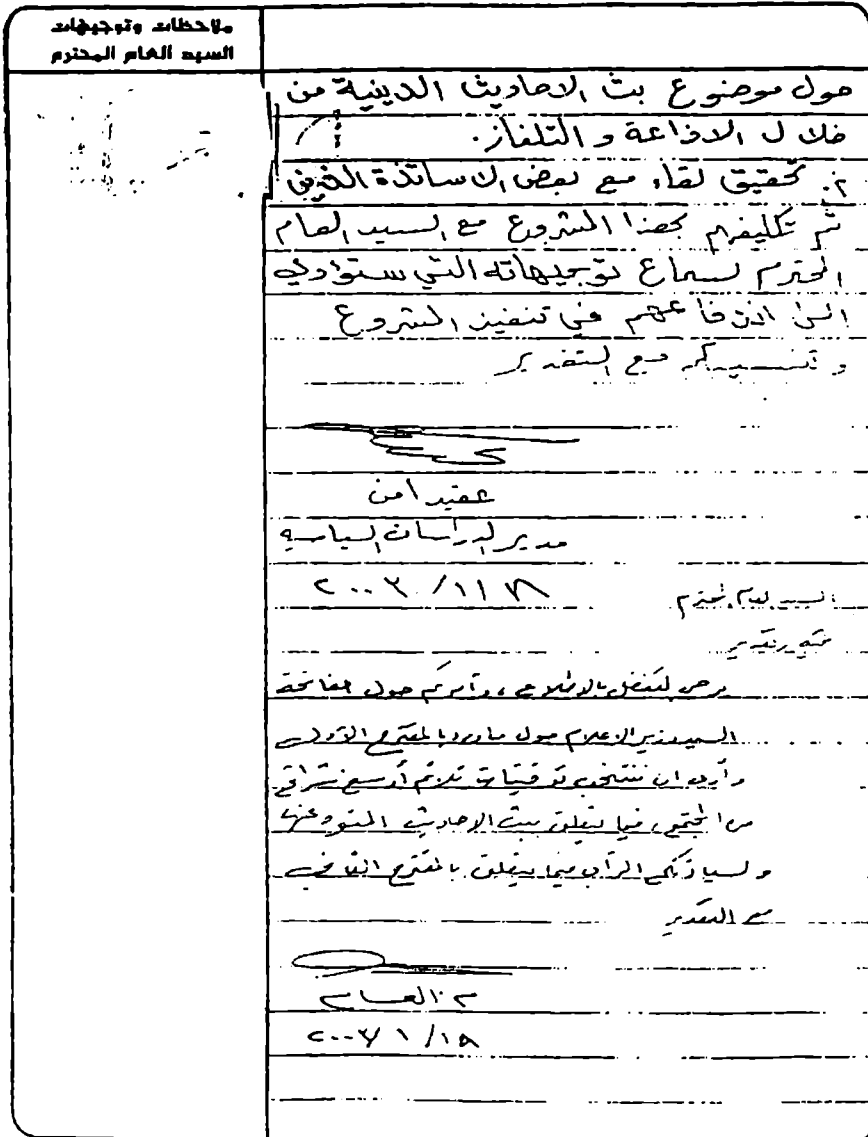 ملاحظات وتوجيهات
السيد العام المحترم
حول موضوع بث الاحاديث الدينية من
خلال الاذاعة و التلفاز.
٢. تحقيق لقاء مع بعض الاساتذة الذين
تم تكليفهم بهذا المشروع مع السيد العام
المحترم لسماع توجيهاته التي ستؤدي
الى اندفاعهم في تنفيذ المشروع
و تنسيبكم مع التقدير
عقيد امن
مدير الدراسات السياسية
السيد العام المحترم
تحية وتقدير
يرجى التفضل بالاطلاع، وأمركم حول مفاتحة
السيد وزير الاعلام حول ماورد بالمقترح الأول
وأرى ان ننتخب توقيتات تلائم أوسع شرائح
من المجتمع، فيما يتعلق ببث الاحاديث المنوه عنها
ولسيادتكم الرأي فيما يتعلق بالمقترح الثاني
مع التقدير
م. العام